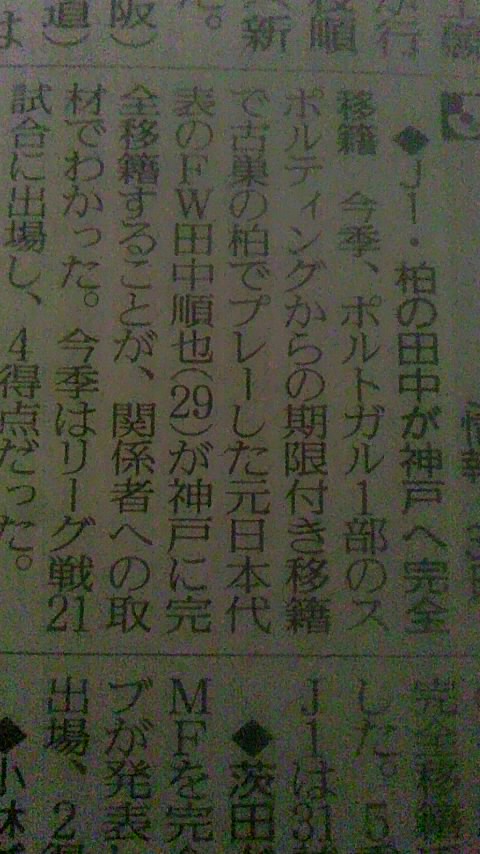 ◆J1・柏の田中が神戸へ完全
移籍　今季、ポルトガル1部のス
ポルティングからの期限付き移籍
で古巣の柏でプレーした元日本代
表のFW田中順也(29)が神戸に完
全移籍することが、関係者への取
材でわかった。今季はリーグ戦21
試合に出場し、4得点だった。
完全移籍
した。5
J1は31
◆茨田
MFを完
ブが発表
出場、2
◆小林